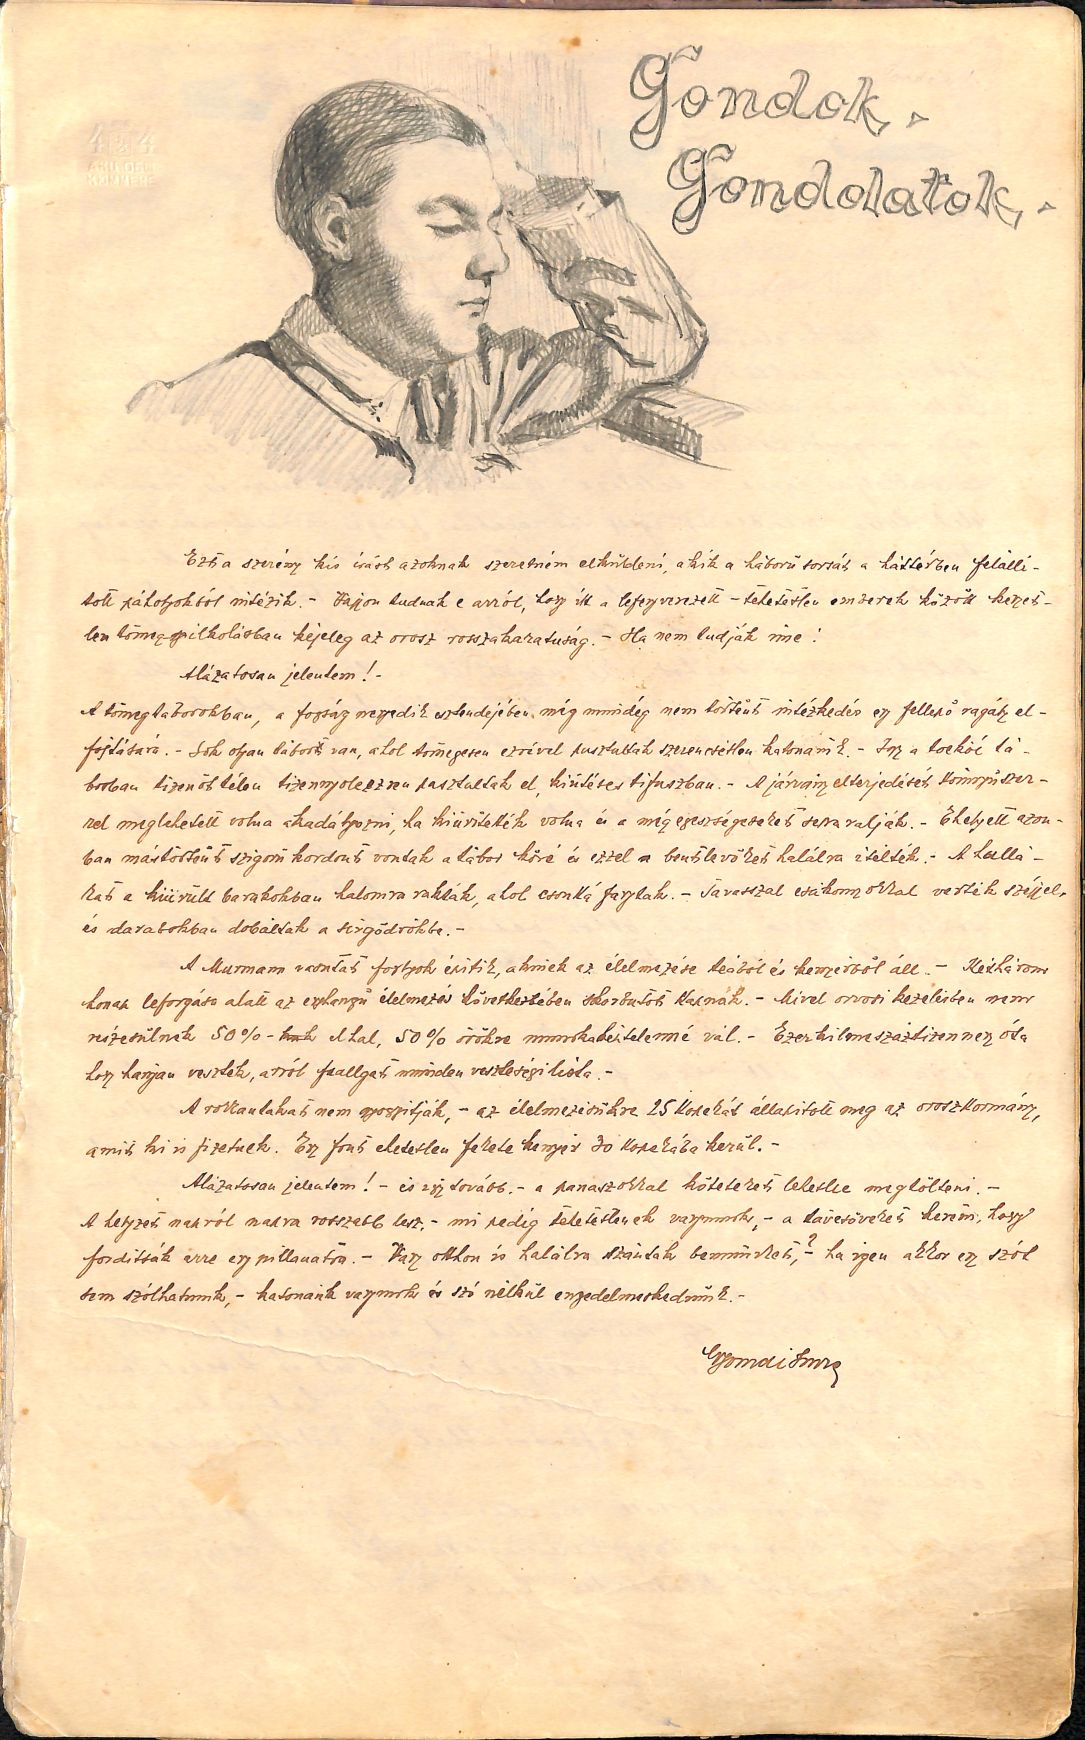 Gondok,-
Gondolatok,-
Ezt a szerény kis írást azoknak szeretném elküldeni, akik a háború sorsát a háttérben felálli-
tott páholyokból intézik. - Vajjon tudnak e arról, hogy itt a lefegyverezett - tehetetlen emberek között kegyet-
len tömeggyilkolásban kéjeleg az orosz rosszakaratuság. - Ha nem tudják ime !
Alázatosan jelentem! -
A tömegtáborokban, a fogság negyedik esztendejében még mindég nem történt intézkedés egy fellépő ragály el-
fojtására. - Sok olyan tábor van, ahol tömegesen ezrével pusztultak szerencsétlen katonáink. - Igy a tockói tá-
borban tizenöt télen tizennyolcezren pusztultak el, kiütéses tifuszban. - A járvány elterjedését könnyűszer-
rel meglehetett volna akadályozni, ha kiürítették volna és a még egészségeseket separálják. - Ehelyett azon-
ban mástörtént szigorú kordont vontak a tábor köré és ezzel a bentlevőket halálra itélték. - A hullá-
kat a kiürült barakokban halomra rakták, ahol csonttá fagytak. - Tavasszal csákányokkal verték széjjel,
és darabokban dobálták a sirgödrökbe. -
A Murmann vasutat foglyok épitik, akinek az élelmezése teából és kenyérből áll. - Kéthárom
hónap leforgása alatt az egyhangú élelmezés következtében skorbutot kapnak. - Mivel orvosi kezelésben nem
részesülnek 50% - elhal, 50% örökre munkaképtelenné vál. - Ezerkilencszáztizennégy óta
hogy hányan vesztek, arról hallgat minden veszteségi lista. -
A rokkantakat nem gyógyitják, - az élelmezésükre 25 kopekát állapitott meg az orosz kormány,
amit ki is fizetnek. Egy font ehetetlen fekete kenyér 30 kopekába kerül. -
Alázatosan jelentem! - és igy tovább. - a panaszokkal köteteket lehetne megtölteni. -
A helyzet napról napra rosszabb lesz, - mi pedig tehetetlenek vagyunk, - a távcsöveket kérem, hogy
forditsák erre egy pillanatra. - Vagy otthon is halálra szántak bennünket, -? ha igen akkor egy szót
sem szólhatunk, - katonák vagyunk és szó nélkül engedelmeskedünk. -
Gyomai Imre